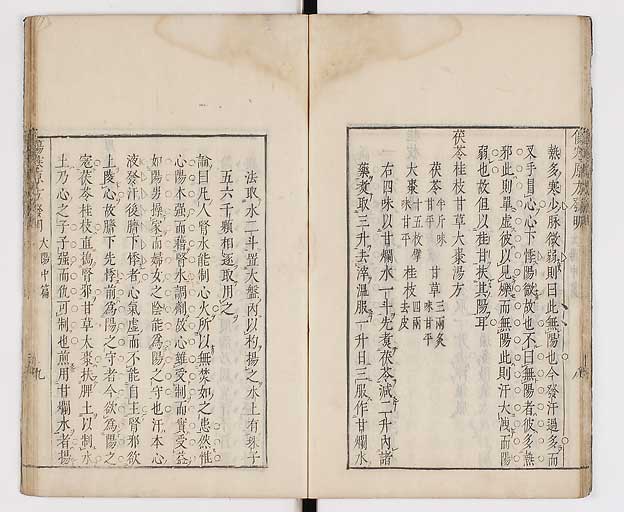 熱多寒少脉微弱則曰此無陽也今發汗過多而
叉手自冐心心下悸陽欲故也不曰無陽者彼多無
邪此則單虛彼以見 而無陽此則汗大 而陽
弱也故但以桂甘扶其陽耳
茯苓桂枝甘草大棗湯方
茯苓半斤味甘平 甘草三兩炙味甘平
大棗十五枚擘味甘平 桂枝四兩去皮
右四味以甘爛水一斗先煑茯苓減二升內諸
藥煑取三升去滓溫服一升日三服作甘爛水
法取水二斗置大盤內以杓揚之水上有珠子
五六千顆相逐取用之
論曰凡人腎水能制心火所以無焚如之患然惟
心陽本强而藉腎水調劑故心雖受制而實受益
如陽男操家而婦女之陰能爲陽之守也汗本心
液發汗後臍下悸者心氣虛而不能自主腎邪欲
上陵心故臍下先悸前爲陽之守者今欲爲陽之
寇茯苓桂枝直搗腎邪甘草大棗扶脾土以制水
土乃心之子子强而仇可制也煎用甘爛水者揚
傷寒 方發明 大陽中篇 九
傷寒 方發明